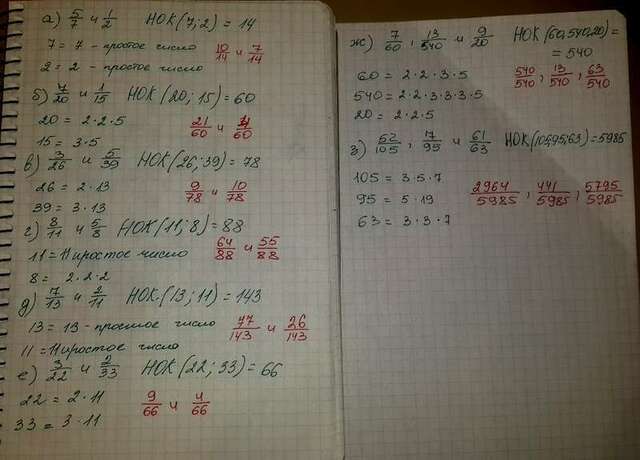 а) 5/7 и 1/2 НОК (7; 2) = 14
7 = 7 - простое число 10/14 и 7/14
2 = 2 - простое число
б) 7/20 и 1/15 НОК (20; 15) = 60
20 = 2·2·5 21/60 и 4/60
15 = 3·5
в) 3/26 и 5/39 НОК (26; 39) = 78
26 = 2·13 9/78 и 10/78
39 = 3·13
г) 8/11 и 5/8 НОК (11; 8) = 88
11 = 11 простое число 64/88 и 55/88
8 = 2·2·2
д) 7/13 и 2/11 НОК (13; 11) = 143
13 = 13 - простое число 77/143 и 26/143
11 = 11 простое число
е) 3/22 и 2/33 НОК (22; 33) = 66
22 = 2·11 9/66 и 4/66
33 = 3·11
ж) 7/60, 13/540 и 9/20 НОК (60, 540, 20) =
= 540
60 = 2·2·3·5 540/540, 13/540, 63/540
540 = 2·2·3·3·3·5
20 = 2·2·5
з) 52/105, 17/95 и 61/63 НОК (105, 95, 63) = 5985
105 = 3·5·7 2964/5985, 441/5985, 5795/5985
95 = 5·19
63 = 3·3·7